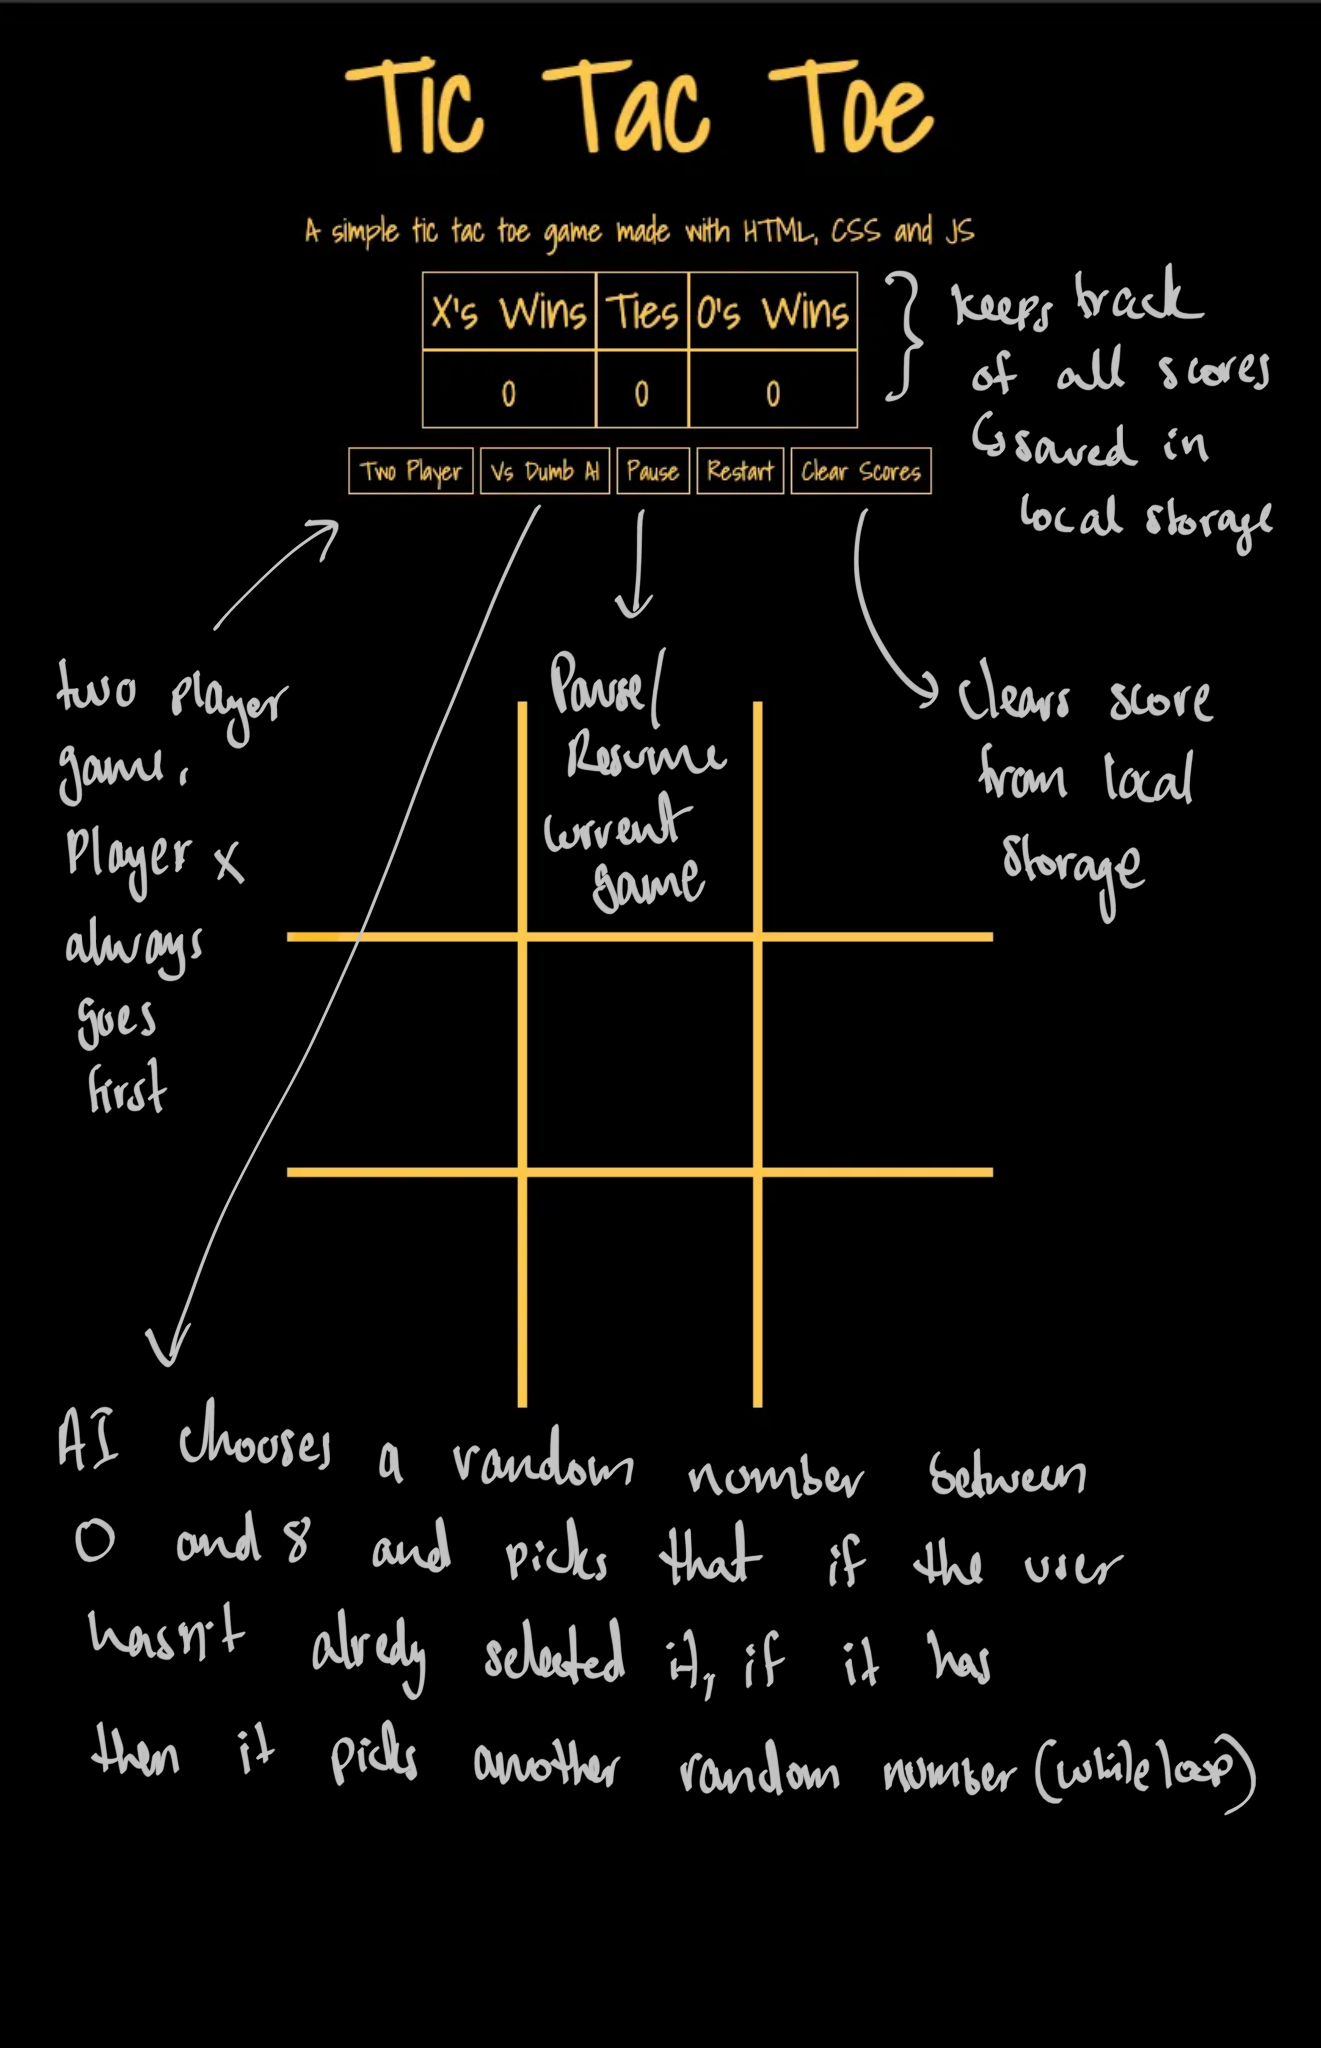 Tic Tac Toe
A simple tic tac toe game made with HTML, CSS and JS
X's Wins Ties O's Wins
0 0 0
Two Player Vs Dumb AI Pause Restart Clear Scores
keeps track
of all scores
saved in
local storage
two player
game.
Player x
always
goes
first
Pause/
Resume
current
game
Clears score
from local
storage
AI chooses a random number between
0 and 8 and picks that if the user
hasn't alredy selected it, if it has
then it picks another random number (while loop)